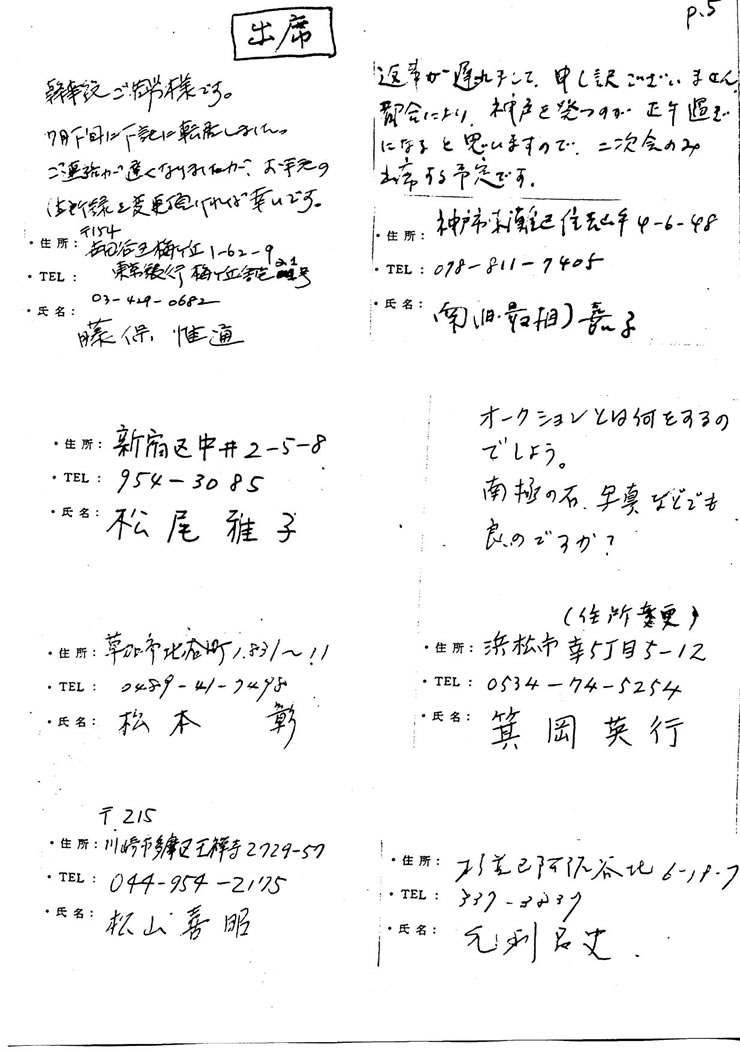 p.5
出席
幹事役ご苦労様です。
7月下旬に下記に転居しました。
ご連絡が遅くなりましたが、お手元の
住所録を変更頂ければ幸いです。
〒154
・住所: 世田谷区梅ヶ丘1-62-9
・TEL: 東京銀行梅ヶ丘 号
03-429-0682
・氏名:
藤保 惟通
返事が遅れまして、申し訳ございません
都合により、神戸を発つのが正午過ぎ
になると思いますので、二次会のみ
出席する予定です。
・住所: 神戸市東灘区住吉山手4-6-48
・TEL: 078-811-7405
・氏名: 南(旧・最相)嘉子
・住所: 新宿区中井2-5-8
・TEL: 954-3085
・氏名: 松尾雅子
オークションとは何をするの
でしょう。
南極の石、写真などでも
良いのですか?
・住所: 草加市北谷町1,831~11
・TEL: 0489-41-7498
・氏名: 松本 彰
(住所変更)
・住所: 浜松市幸5丁目5-12
・TEL: 0534-74-5254
・氏名: 箕岡英行
〒215
・住所: 川崎市多摩区王禅寺2729-57
・TEL: 044-954-2175
・氏名: 松山善昭
・住所: 杉並区阿佐谷北6-18-7
・TEL: 337-3837
・氏名: 毛利呂史